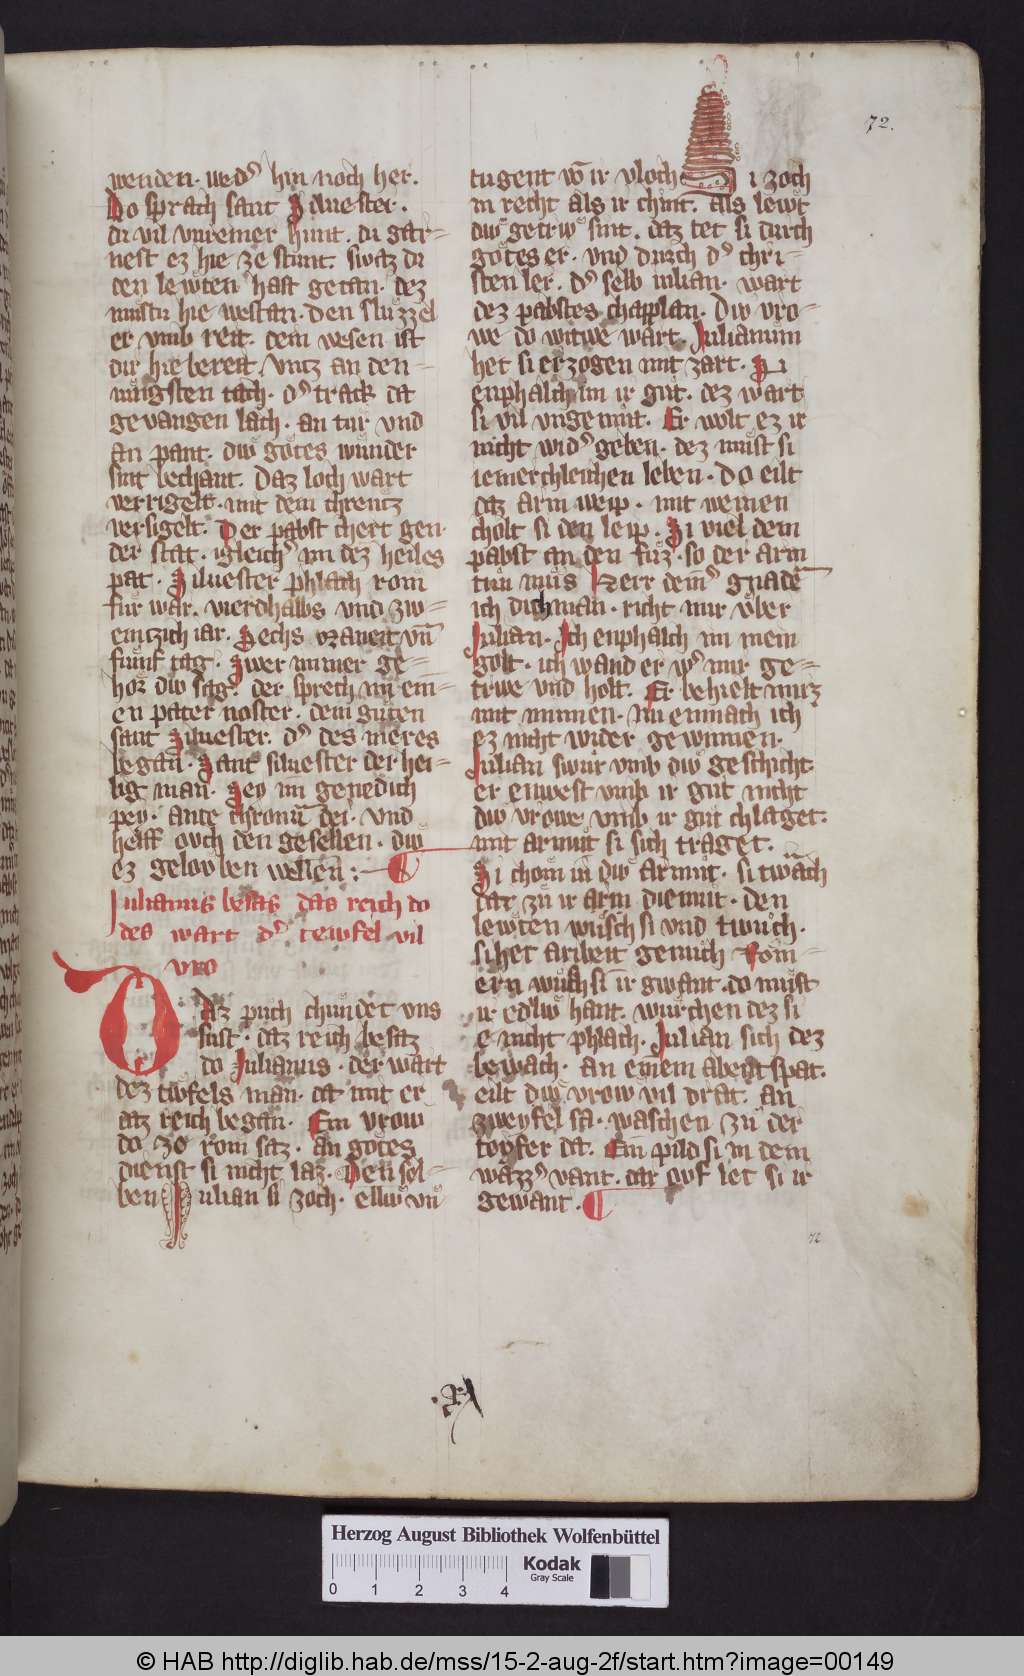 72.
wenden. wedˀ hin noch her.
Do sprach sant Siluester.
du vil vnreiner hunt. du gar=
nest ez hie ze stunt. swaz du
den lewten hast getan. dez
mustu hie westan. den sluzzel
er vmb reit. dem wesen ist
dir hie bereit. vntz an den=
iungsten tach. dˀ track da
gevangen lach. an tur vnd
an pant. diw gotes wunder
sint bechant. Daz loch wart
verrigelt. mit dem chreutz
versigelt. Der pabst chert gen.
der stat. igleichˀ im dez heiles
pat. Siluester phlach rom
fur war. vierdhalbs vnd zw=
eintzich iar. Sechs maneit vn̄
funf tag. Swer immer ge=
hor diw sag. der sprech im ein=
en pater noster. dem guten
sant Siluester. dˀ des meres
began. Sant siluester der hei=
lig man. Sey im genedich
pey. ante thronū dei. vnd
helff ovch den gesellen. diw
ez gelovben wellen:
Iulianus besas das reich do
des wart dˀ tewfel vil
vro
Daz puch chundet vns
sust. daz reich besaz
do Iulianus. der wart
dez tiwfels man. da mit er
daz reich began. Ein vrow
do ze rom saz. an gotes
dienst si nicht laz. Den sel=
ben Iulian si zoch. elliw vn̄
tugent vō ir vloch Si zoch
in recht als ir chint. als lewt
diw getrw sint. daz tet si durch
gotes er. vnd durch dˀ chri=
sten ler. dˀ selb iulian. wart
dez pabstes chapplan. Diw vro=
we do witwe wart. Iulianum
het si erzogen mit zart. Si
enphalch im ir gut. dez wart
si vil vngemut. Er wolt ez ir
nicht widˀ geben. dez must si
iemerchleichen leben. Do eilt
daz arm weip. mit weinen
cholt si den leip. Si viel dem
pabst an den fuz. so der arm
tun mus Herr deinˀ gnadē
ich dich man. richt mir vber
Iulian. Ich enphalch im mein
golt. ich wand er wˀ mir ge=
triwe vnd holt. Er behielt mirz
mit minnen. Nu enmach ich
ez nicht wider gewinnen.
Iulian swur vmb diw geschicht
er enwest vmb ir gut nicht
diw vrowe vmb ir gut chlaget.
mit armut si sich traget.
Si chom in diw armut. si twāch
dar zu ir arm diemut. den
lewten wusch si vnd twuch.
si het aribeit genuch Rom=
ern wusch si ir gwant. do must
ir edliw hant. wurchen dez si
e nicht phlach. Iulian sich dez
bewach. an einem abent spat.
eilt diw vrow vil drat. an
zweyfel sa. waschen zu der
toyfer da. Ein pild si in dem
wazzˀ vant. dar ovf let si ir
gewant.
72
Herzog August Bibliothek Wolfenbüttel
Kodak
Gray Scale
0 1 2 3 4
© HAB http://diglib.hab.de/mss/15-2-aug-2f/start.htm?image=00149